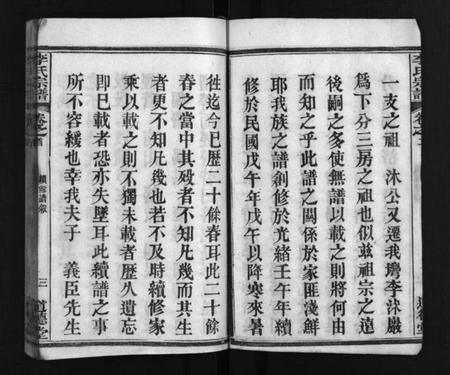 李氏宗譜
卷之首
一支之祖 沐公又遷我灣李沐巖
爲下分三房之祖也似玆祖宗之遠
後嗣之多使無譜以載之則將何由
而知之乎此譜之關係於家匪淺鮮
耶我族之譜創修於光緒壬午年續
修於民國戊午年戊午以降寒來暑
徃迄今巳歷二十餘春耳此二十餘
春之當中其殁者不知凡幾而其生
者更不知凡幾也若不及時續修家
乘以載之則不獨未載者歷久遺忘
即巳載者恐亦失墜耳此續譜之事
所不容緩也幸我夫子 義臣先生
李氏宗譜
卷之首
續修譜敘
三
道德堂